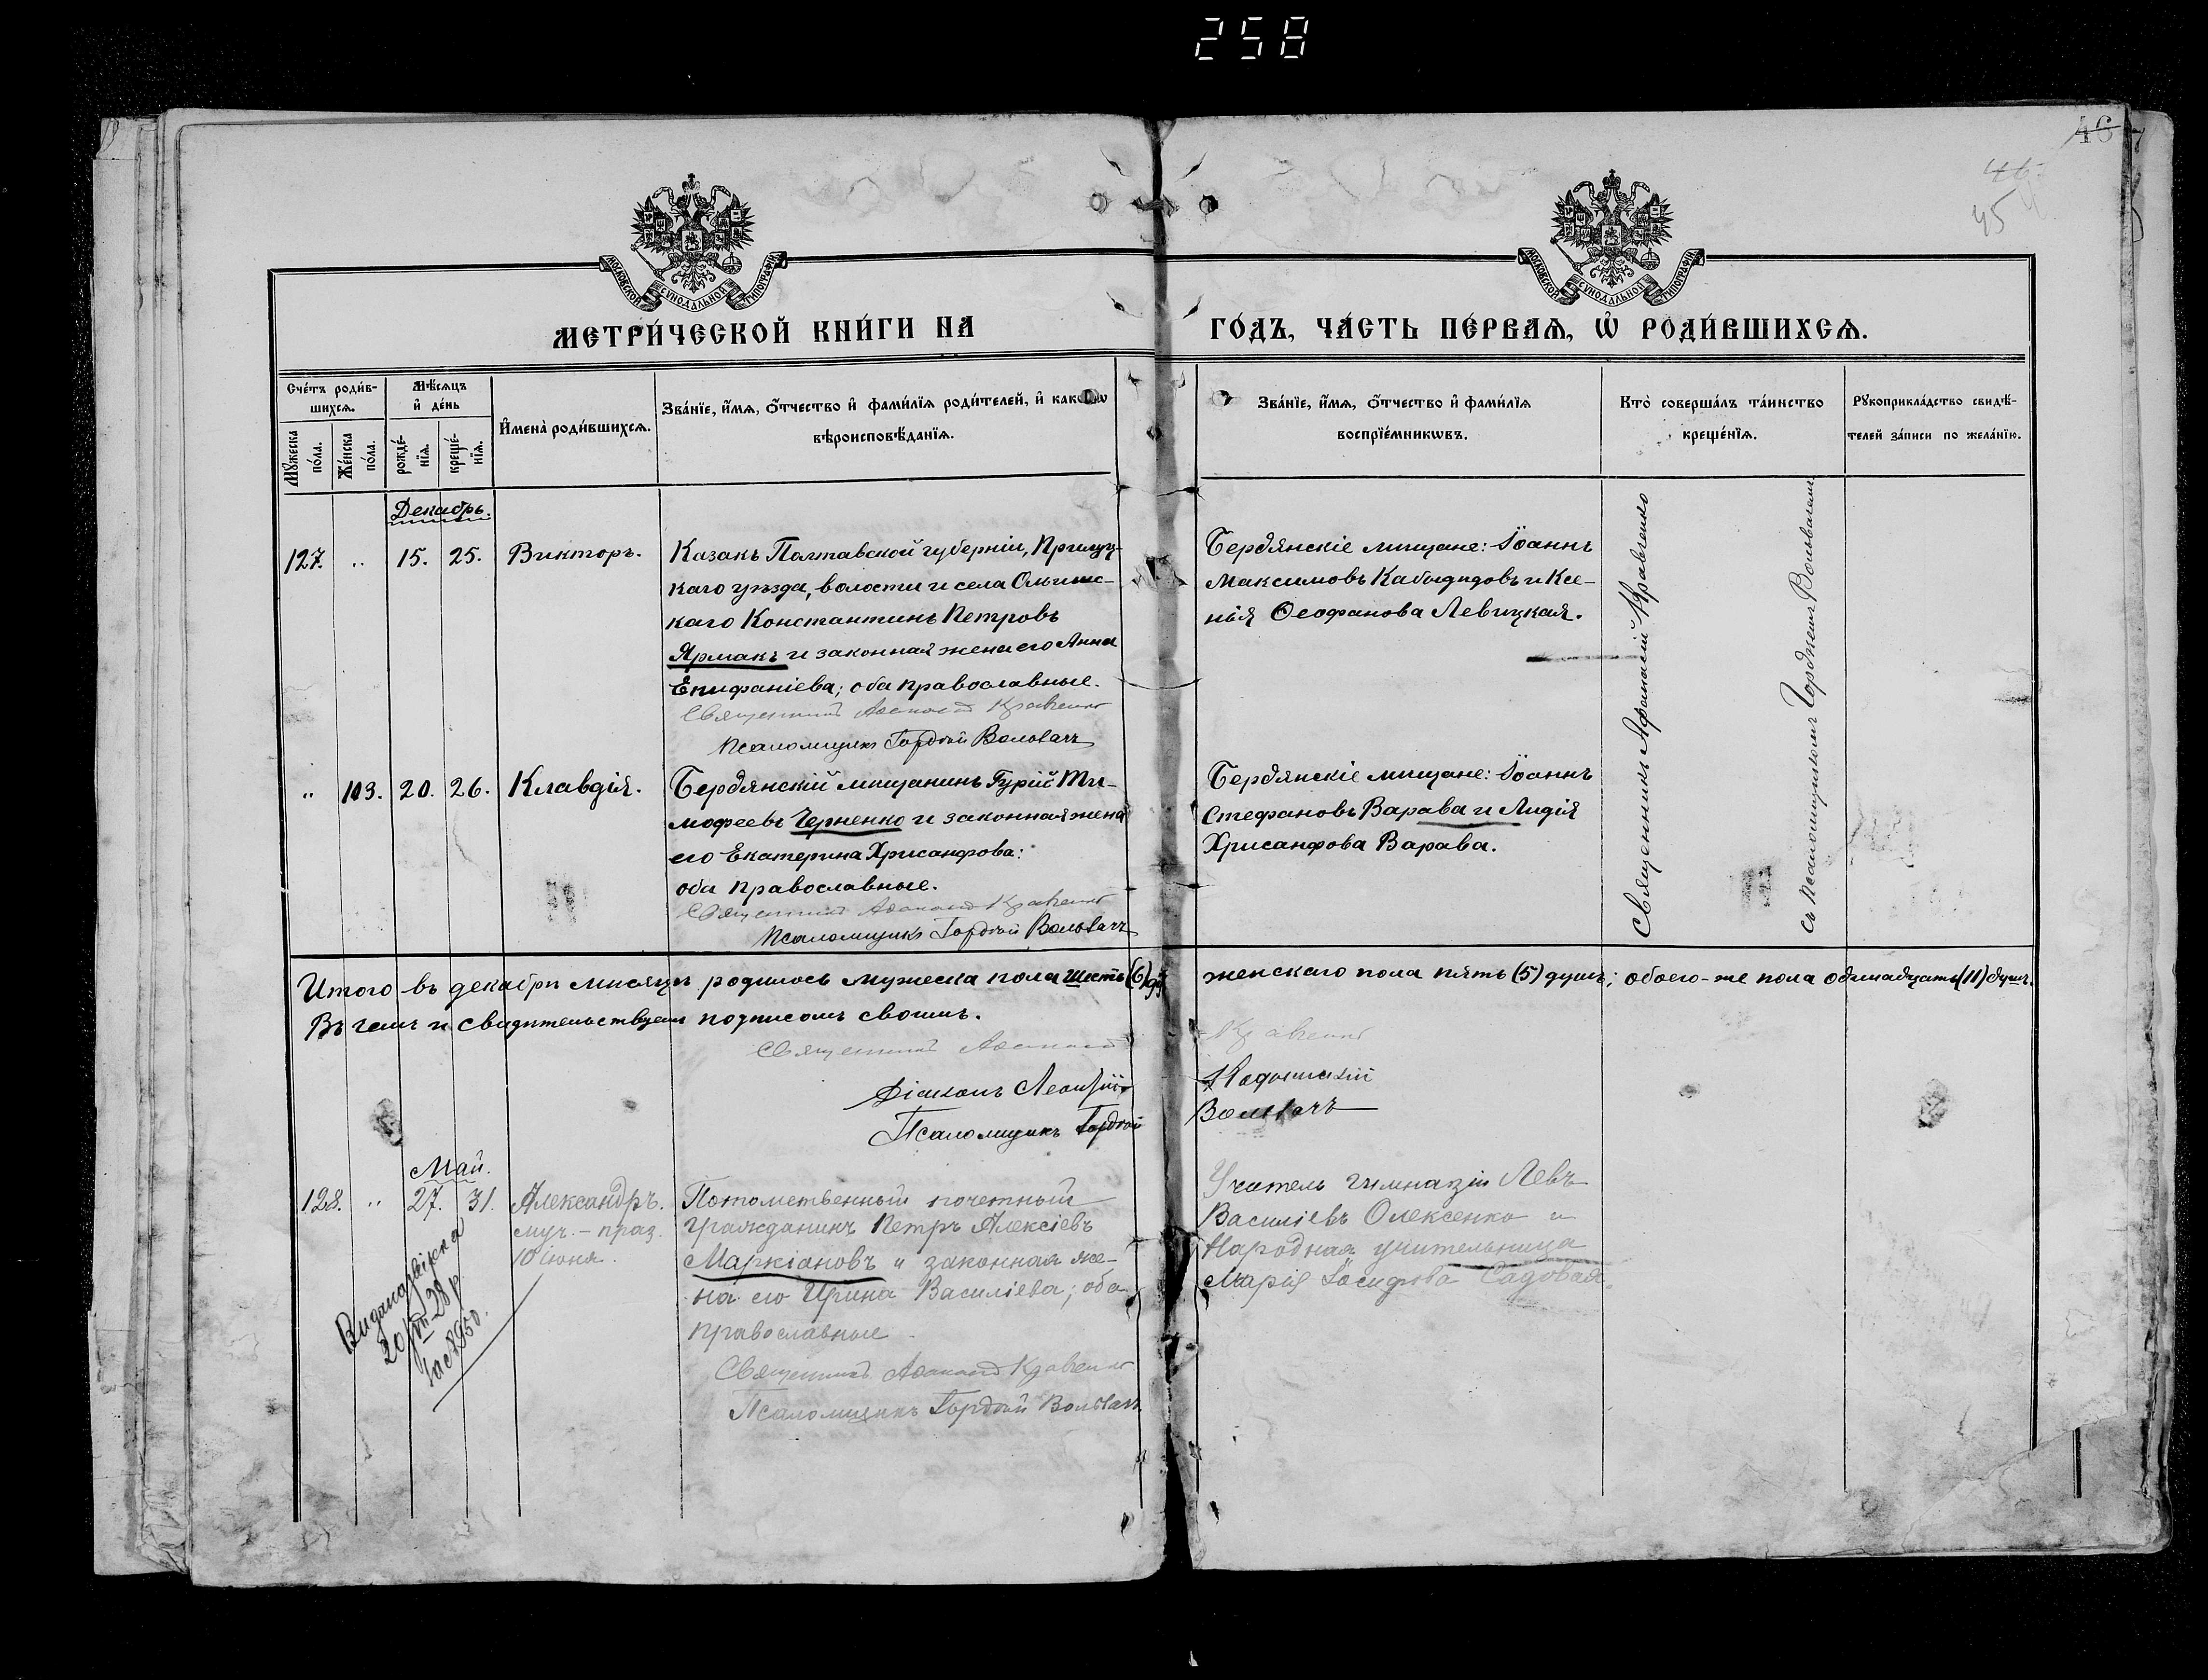 258
46
45
МОСКОВСКОЙ СѴНОДАЛЬНОЙ ТИПОГРАФІИ
МОСКОВСКОЙ СѴНОДАЛЬНОЙ ТИПОГРАФІИ
МЕТРИ́ЧЕСКОЙ КНИ́ГИ НА
ГО́ДЪ, ЧА́СТЬ ПЕ́РВАѦ, Ѡ҆ РОДИ́ВШИХСѦ.
Сче́тъ роди́в-
шихсѧ.
Мѣ́сѧцъ
и҆ де́нь
Мꙋ́жеска
по́ла.
Же́нска
по́ла.
рожде́-
нїѧ.
креще́-
нїѧ.
И҆мена̀ роди́вшихсѧ.
Зва́нїе, и҆́мѧ, о҆́тчество и҆ фами́лїѧ роди́телей, и҆ како́гѡ
вѣроисповѣ́данїѧ.
Зва́нїе, и҆́мѧ, о҆́тчество и҆ фами́лїѧ
воспрїе́мникѡвъ.
Кто̀ соверша́лъ та́инство
креще́нїѧ.
Рꙋкоприкла́дство свидѣ́-
телей за́писи по жела́нїю.
Декабрь.
127. „ 15. 25. Викторъ.
Казакъ Полтавской губерніи, Прилуц-
каго уѣзда, волости и села Ольшанс-
каго Константинъ Петровъ
Ярмакъ и законная жена его Анна
Епифаніева; оба православные.
Священникъ Афанасій Кравченко
Псаломщикъ Гордѣй Вольвачъ
Бердянскіе мѣщане: Іоаннъ
Максимовъ Кабыдидовъ и Ксе-
нія Ѳеофанова Левицкая.
Священникъ Афанасій Кравченко
съ псаломщикомъ Гордѣемъ Вольвачемъ
„ 103. 20. 26. Клавдія.
Бердянскій мѣщанинъ Гурій Ти-
мофеевъ Черненко и законная жена
его Екатерина Хрисанфова:
оба православные.
Священникъ Афанасій Кравченко
Псаломщикъ Гордѣй Вольвачъ
Бердянскіе мѣщане: Іоаннъ
Стефановъ Варава и Лидія
Хрисанфова Варава.
Итого въ декабрѣ мѣсяцѣ родилось мужеска пола шесть (6) д.
женскаго пола пять (5) душъ; обоего-же пола одинадцать (11) душъ.
Въ чемъ и свидѣтельствуемъ подписомъ своимъ.
Священникъ Афанасій Кравченко
Діаконъ Леонтій
Псаломщикъ Гордѣй Вольвачъ
Май.
128. „ 27. 31. Александръ.
муч. - праз.
10 іюня.
Потомственный почетный
гражданинъ Петръ Алексіевъ
Маркіановъ и законная же-
на его Ирина Василіева; оба
православные.
Священникъ Афанасій Кравченко
Псаломщикъ Гордѣй Вольвачъ
Учитель гимназіи Левъ
Василіевъ Олексенко и
Народная учительница
Марія Іосифова Садовая.
Видана
20/VIII 28 р.
8950.